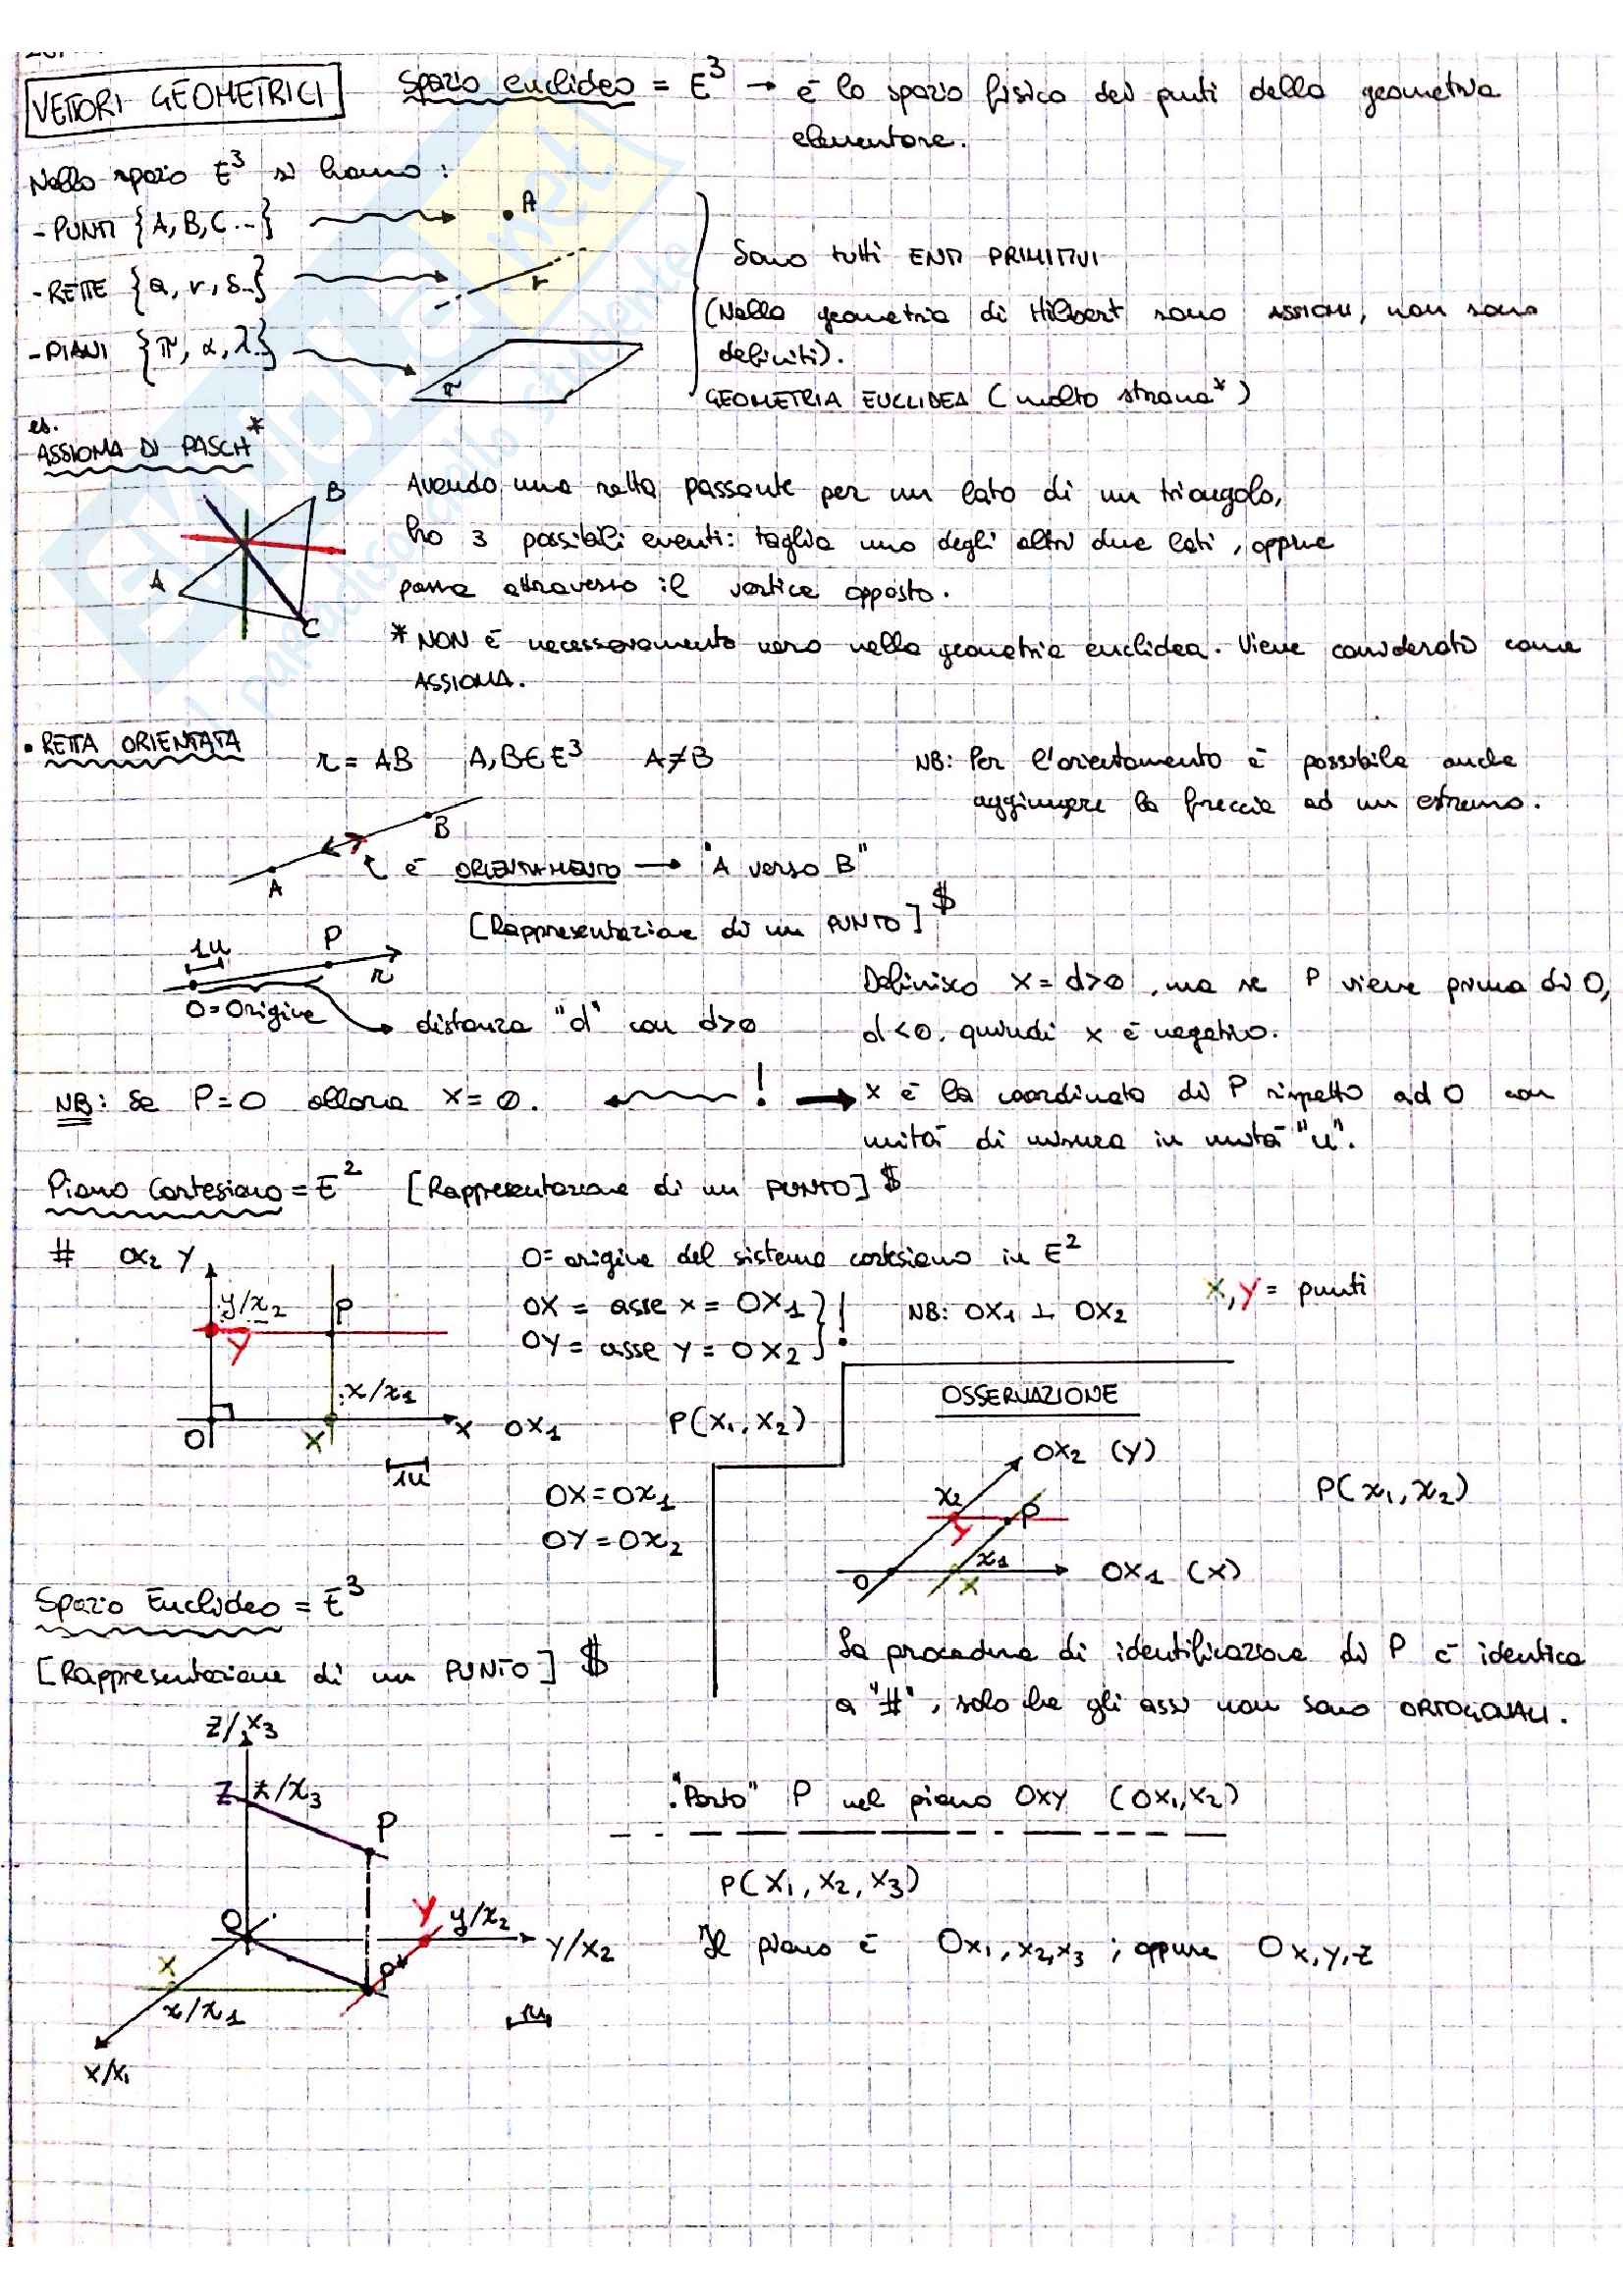 VETTORI GEOMETRICI
Spazio euclideo = E³ → è lo spazio fisico dei punti della geometria
elementare.
Nello spazio E³ si hanno:
- PUNTI {A, B, C...} A
- RETTE {a, r, s..} r
- PIANI {π, α, λ..} π
Sono tutti ENTI PRIMITIVI
(Nella geometria di Hilbert sono ASSIOMI, non sono
definiti).
GEOMETRIA EUCLIDEA (molto strana*)
es.
ASSIOMA DI PASCH*
A B C
Avendo una retta passante per un lato di un triangolo,
ho 3 possibili eventi: taglia uno degli altri due lati, oppure
passa attraverso il vertice opposto.
* NON è necessariamente vero nella geometria euclidea. Viene considerato come
ASSIOMA.
• RETTA ORIENTATA r = AB A,B∈E³ A≠B
NB: Per l'orientamento è possibile anche
aggiungere la freccia ad un estremo.
A B
è ORIENTAMENTO → "A verso B"
[Rappresentazione di un PUNTO] $
1u P r
O=Origine
distanza "d" con d>0
Definisco x = d>0, ma se P viene prima di O,
d<0, quindi x è negativo.
NB: Se P=O allora x=0. ! → x è la coordinata di P rispetto ad O con
unità di misura in unità "u".
Piano Cartesiano = E² [Rappresentazione di un PUNTO] $
# OX₂ Y
y/x₂ P
Y
x/x₁
O X X OX₁
1u
O = origine del sistema cartesiano in E²
OX = asse x = OX₁
OY = asse Y = OX₂ !
NB: OX₁ ⊥ OX₂
X, Y = punti
P(X₁, X₂)
OX = Ox₁
OY = Ox₂
OSSERVAZIONE
OX₂ (Y)
x₂ P
Y
x₁
O X OX₁ (X)
P(x₁, x₂)
La procedura di identificazione di P è identica
a "#", solo che gli assi non sono ORTOGONALI.
Spazio Euclideo = E³
[Rappresentazione di un PUNTO] $
Z/X₃
Z z/x₃
P
O Y y/x₂ Y/X₂
X P'
x/x₁
1u
X/X₁
"Porto" P nel piano OXY (OX₁,X₂)
P(X₁, X₂, X₃)
Il piano è Ox₁, x₂, x₃; oppure Ox, y, z